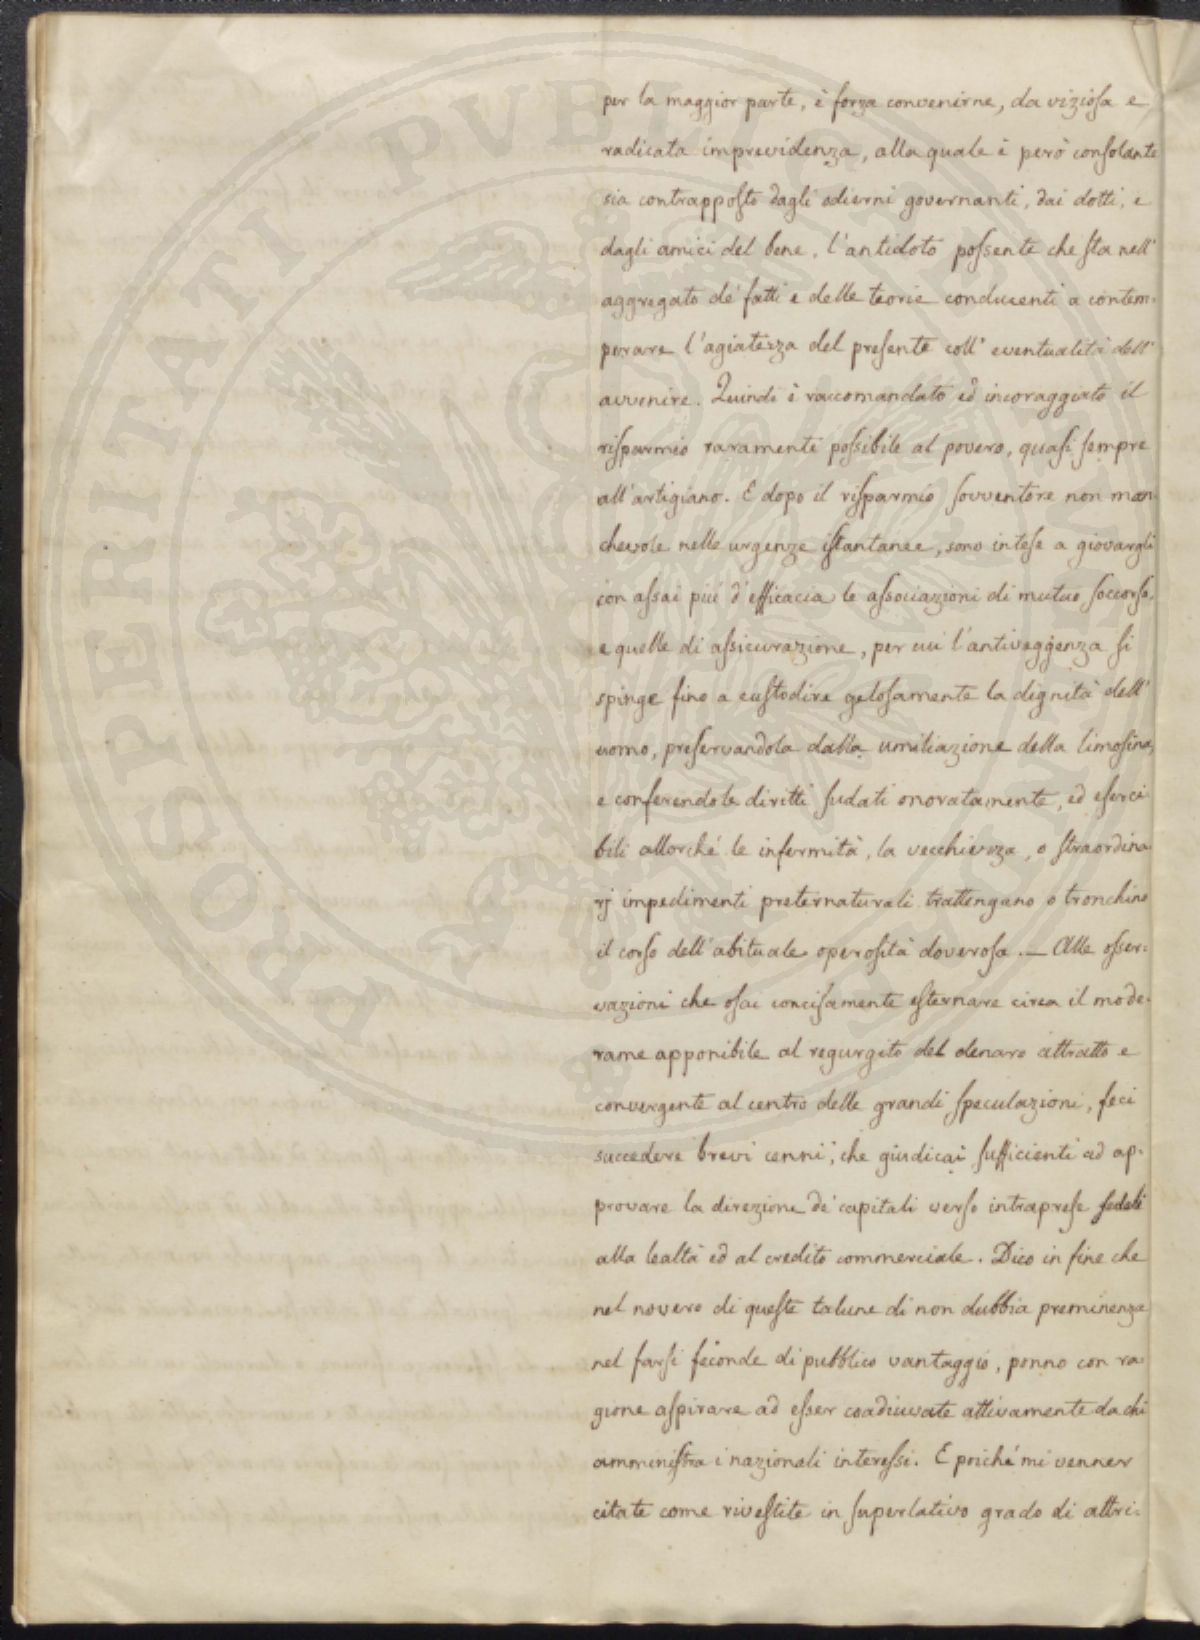 PROSPERITATI PVBLICAE AVGENDAE
per la maggior parte, è forza convenirne, da viziosa e
radicata imprevidenza, alla quale è però consolante
sia contrapposto dagli odierni governanti, dai dotti, e
dagli amici del bene, l'antidoto possente che sta nell'
aggregato de' fatti e delle teorie conducenti a contem-
perare l'agiatezza del presente coll' eventualità dell'
avvenire. Quindi è raccomandato ed incoraggiato il
risparmio raramente possibile al povero, quasi sempre
all'artigiano. E dopo il risparmio sovventore non man-
chevole nelle urgenze istantanee, sono intese a giovargli
con assai più d'efficacia le associazioni di mutuo soccorso,
e quelle di assicurazione, per cui l'antiveggenza si
spinge fino a custodire gelosamente la dignità dell'
uomo, preservandola dalla umiliazione della limosina,
e conferendole diritti sudati onoratamente, ed eserci-
bili allorché le infermità, la vecchiezza, o straordina-
rj impedimenti preternaturali trattengano o tronchino
il corso dell'abituale operosità doverosa. — Alle osser-
vazioni che osai concisamente esternare circa il mode-
rame apponibile al regurgito del denaro attratto e
convergente al centro delle grandi speculazioni, feci
succedere brevi cenni, che giudicai sufficienti ad ap-
provare la direzione de' capitali verso intraprese fedeli
alla lealtà ed al credito commerciale. Dico in fine che
nel novero di queste talune di non dubbia preminenza
nel farsi feconde di pubblico vantaggio, ponno con ra-
gione aspirare ad esser coadiuvate attivamente da chi
amministra i nazionali interessi. E poiché mi venner
citate come rivestite in superlativo grado di attri-